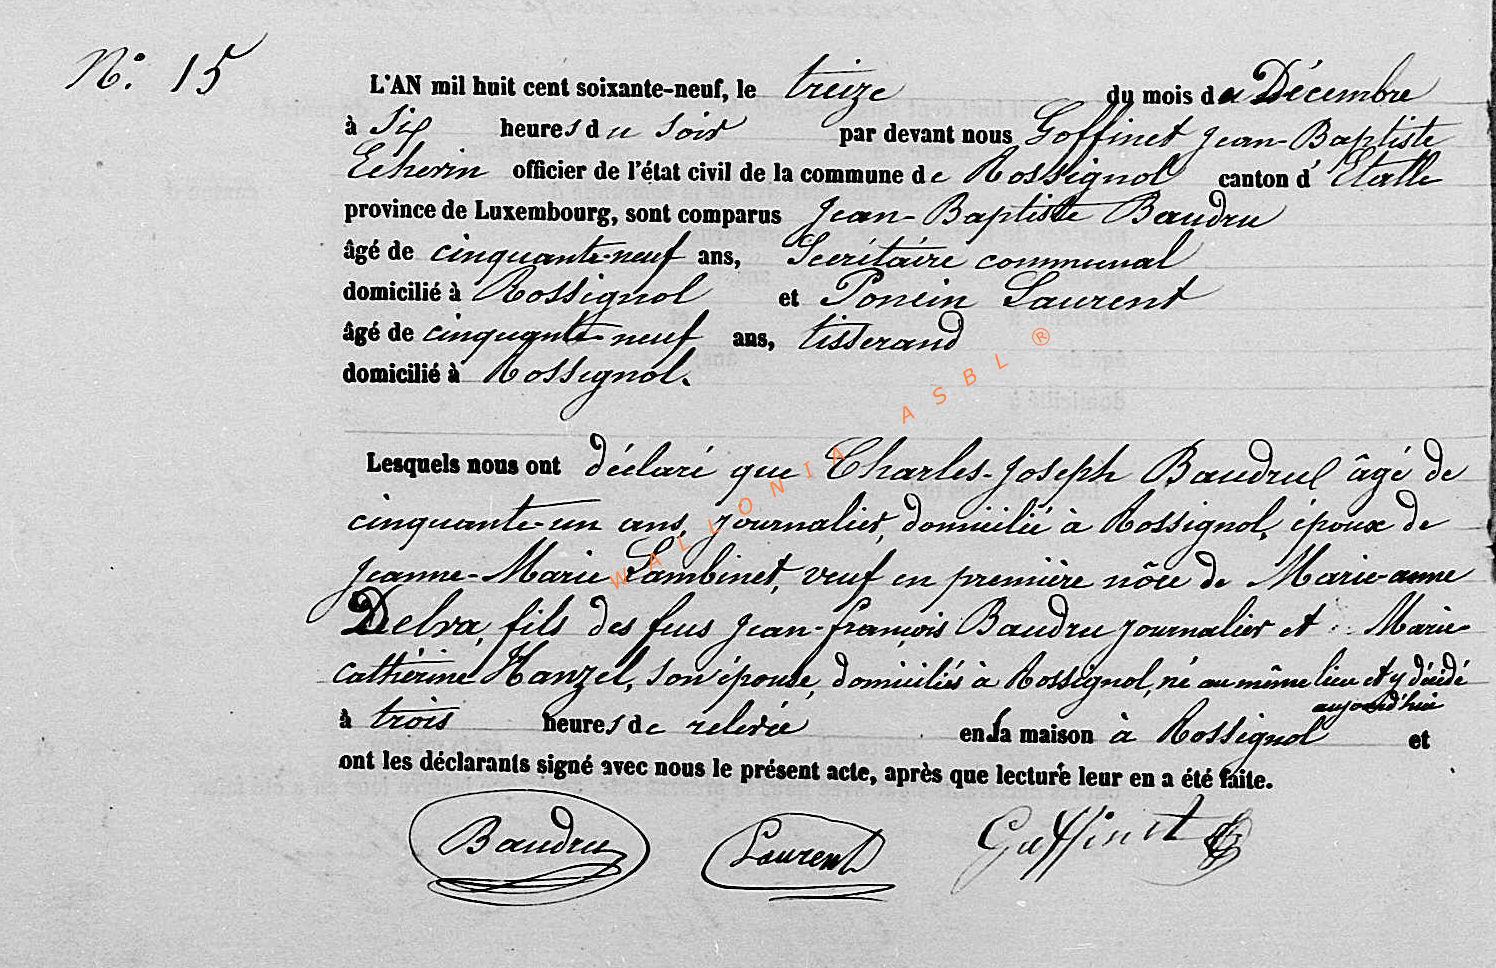 N° 15
L'AN mil huit cent soixante-neuf, le treize du mois de Décembre
à Six heures du soir par devant nous Goffinet Jean-Baptiste
Echevin officier de l'état civil de la commune de Rossignol canton d'Etalle
province de Luxembourg, sont comparus Jean-Baptiste Baudru
âgé de cinquante-neuf ans, Secrétaire communal
domicilié à Rossignol et Poncin Laurent
âgé de cinquante-neuf ans, tisserand
domicilié à Rossignol.
Lesquels nous ont déclaré que Charles-Joseph Baudru âgé de
cinquante-un ans, journalier, domicilié à Rossignol, époux de
Jeanne-Marie Lambinet, veuf en première nôce de Marie-anne
Delva, fils des feus Jean-françois Baudru journalier et Marie-
Cathérine Hanzel, son épouse, domiciliés à Rossignol, né au même lieu et y décédé
aujourd'hui
à trois heures de relevée en la maison à Rossignol et
ont les déclarants signé avec nous le présent acte, après que lecture leur en a été faite.
Baudru Laurent Goffinet
WALLONIA ASBL ®